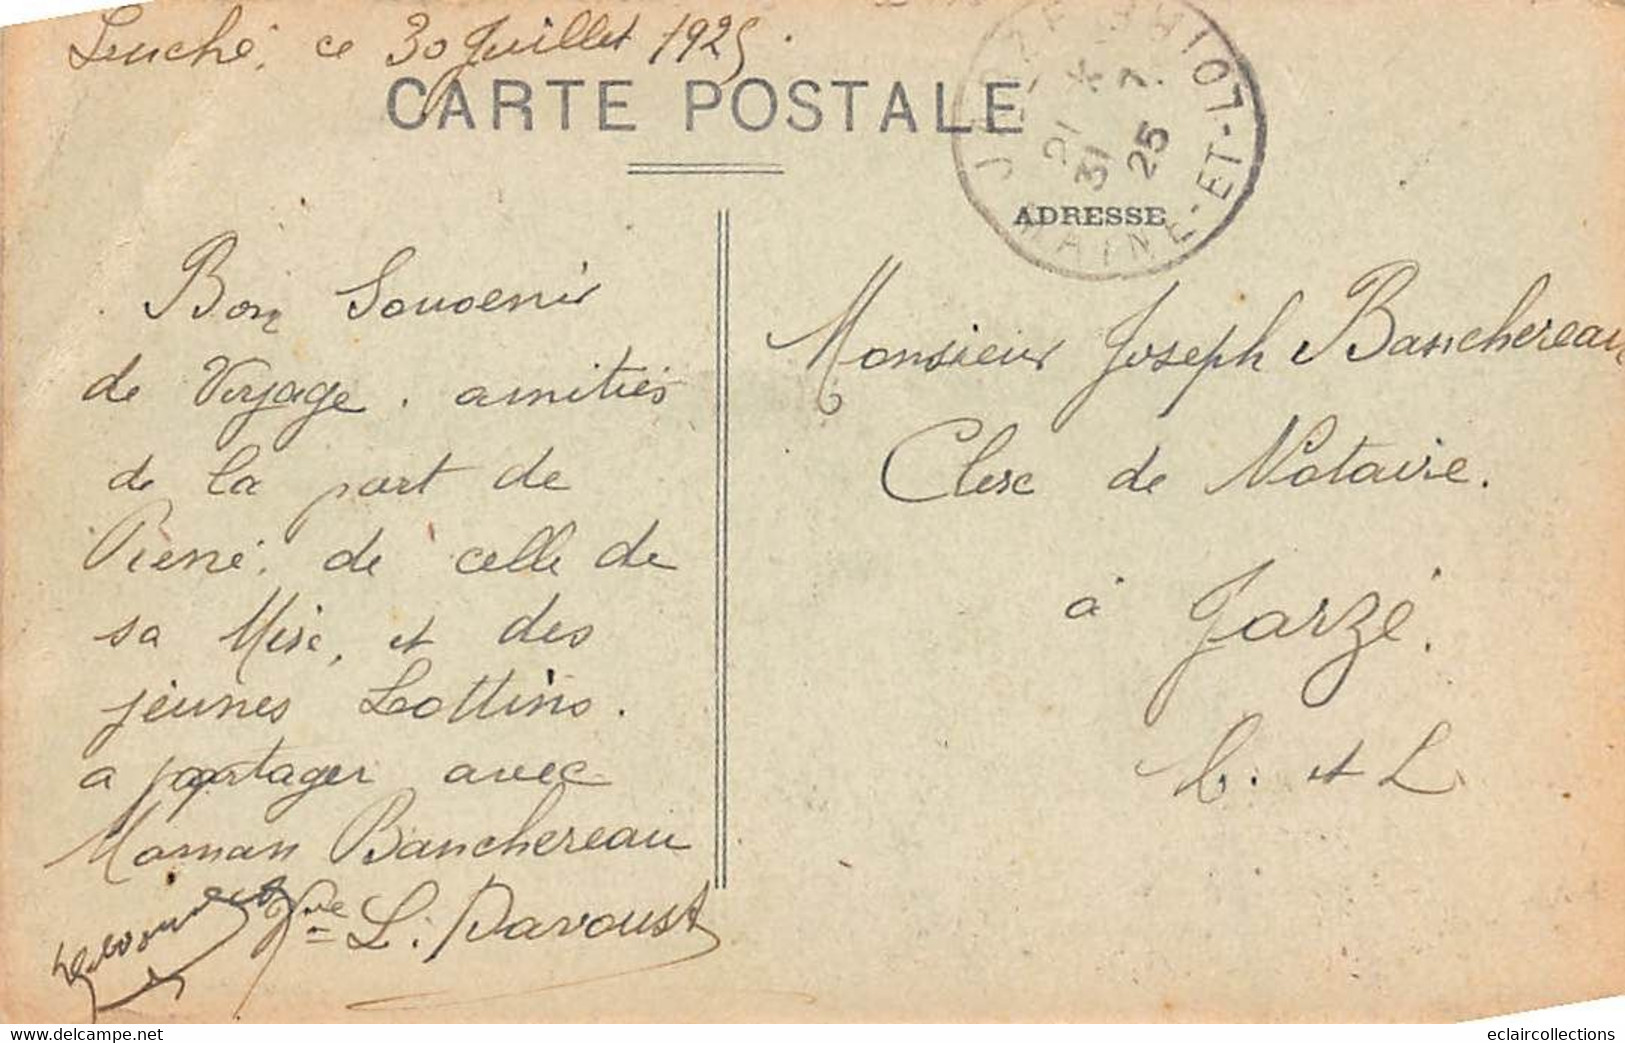 Luché, ce 30 Juillet 1925.
CARTE POSTALE
ADRESSE
21 *
31 7
25
MAINE-ET-LOIRE
Bon Souvenir
de Voyage. amitiés
de la part de
René. de celle de
sa Mère, et des
jeunes Lottins.
a partager avec
Maman Banchereau
Vve L. Davoust
Monsieur Joseph Banchereau
Clerc de Notaire.
à Jarzé.
M. et L
www.delcampe.net
eclaircollections